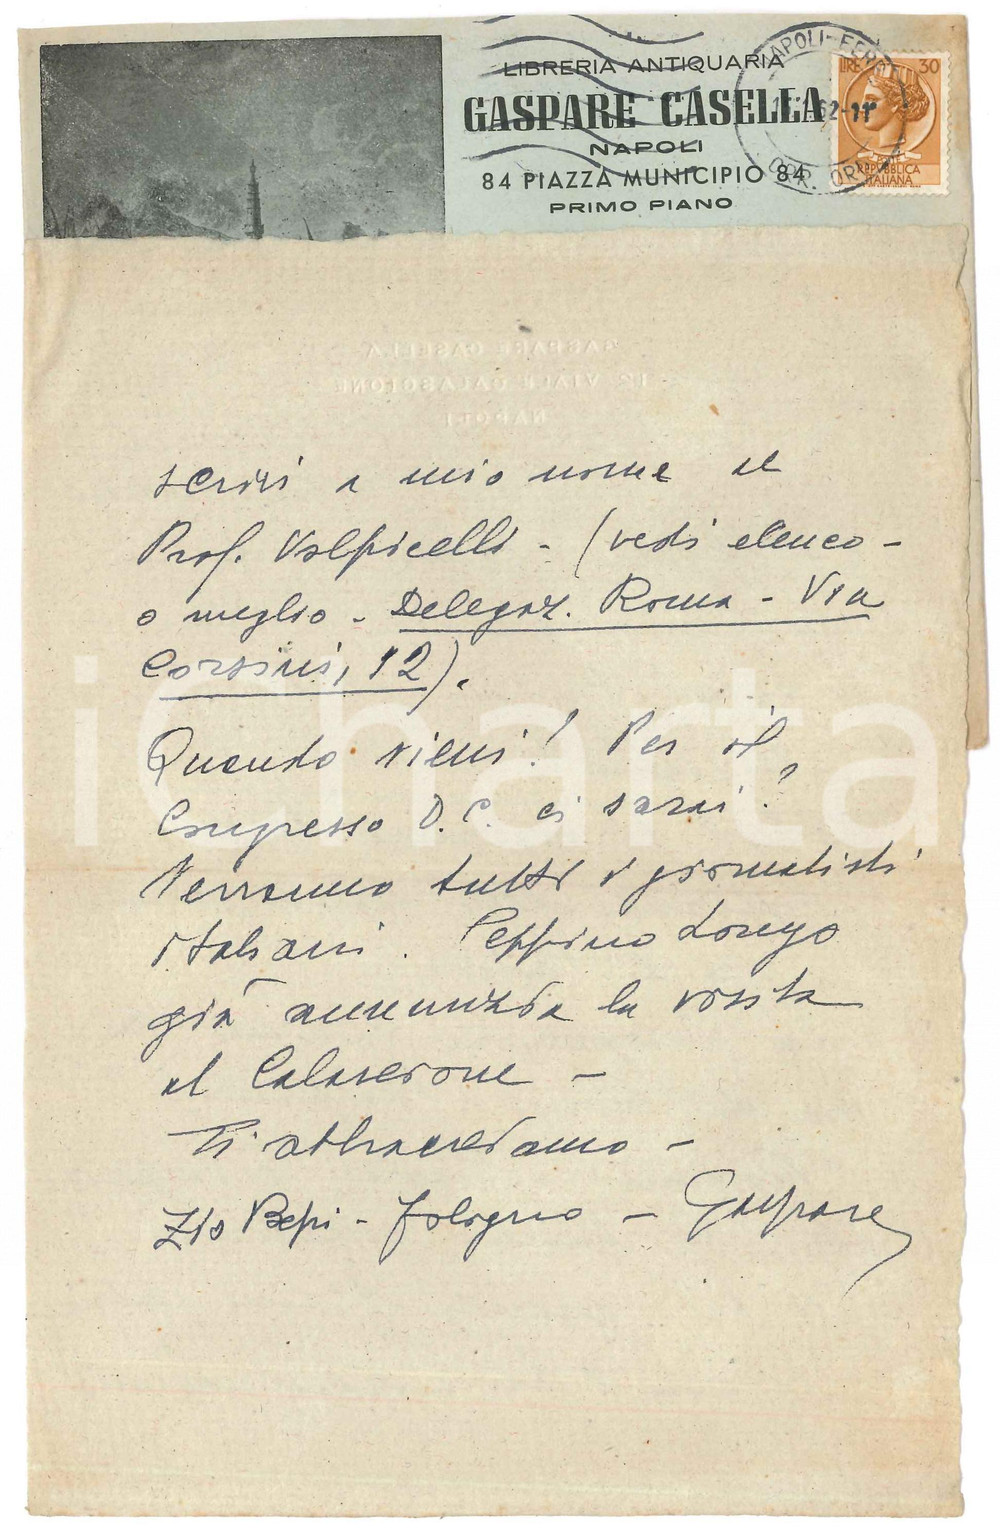 LIBRERIA ANTIQUARIA
GASPARE CASELLA
NAPOLI
84 PIAZZA MUNICIPIO 84
PRIMO PIANO
NAPOLI-FERR
62-11
LIRE 30
POSTE
REPVBBLICA
ITALIANA
GASPARE CASELLA
12 VIALE CALASCIONE
NAPOLI
scrivi a mio nome al
Prof. Volpicelli - (vedi elenco -
o meglio - Delegaz. Roma - Via
Corsini, 12).
Quando vieni! Per il
Congresso D.C. ci sarai?
Verranno tutti i giornalisti
italiani. Peppino Longo
già annunzia la visita
al Calascione -
Ti abbracciamo -
Zio Bepi - - Gaspare
iCharta